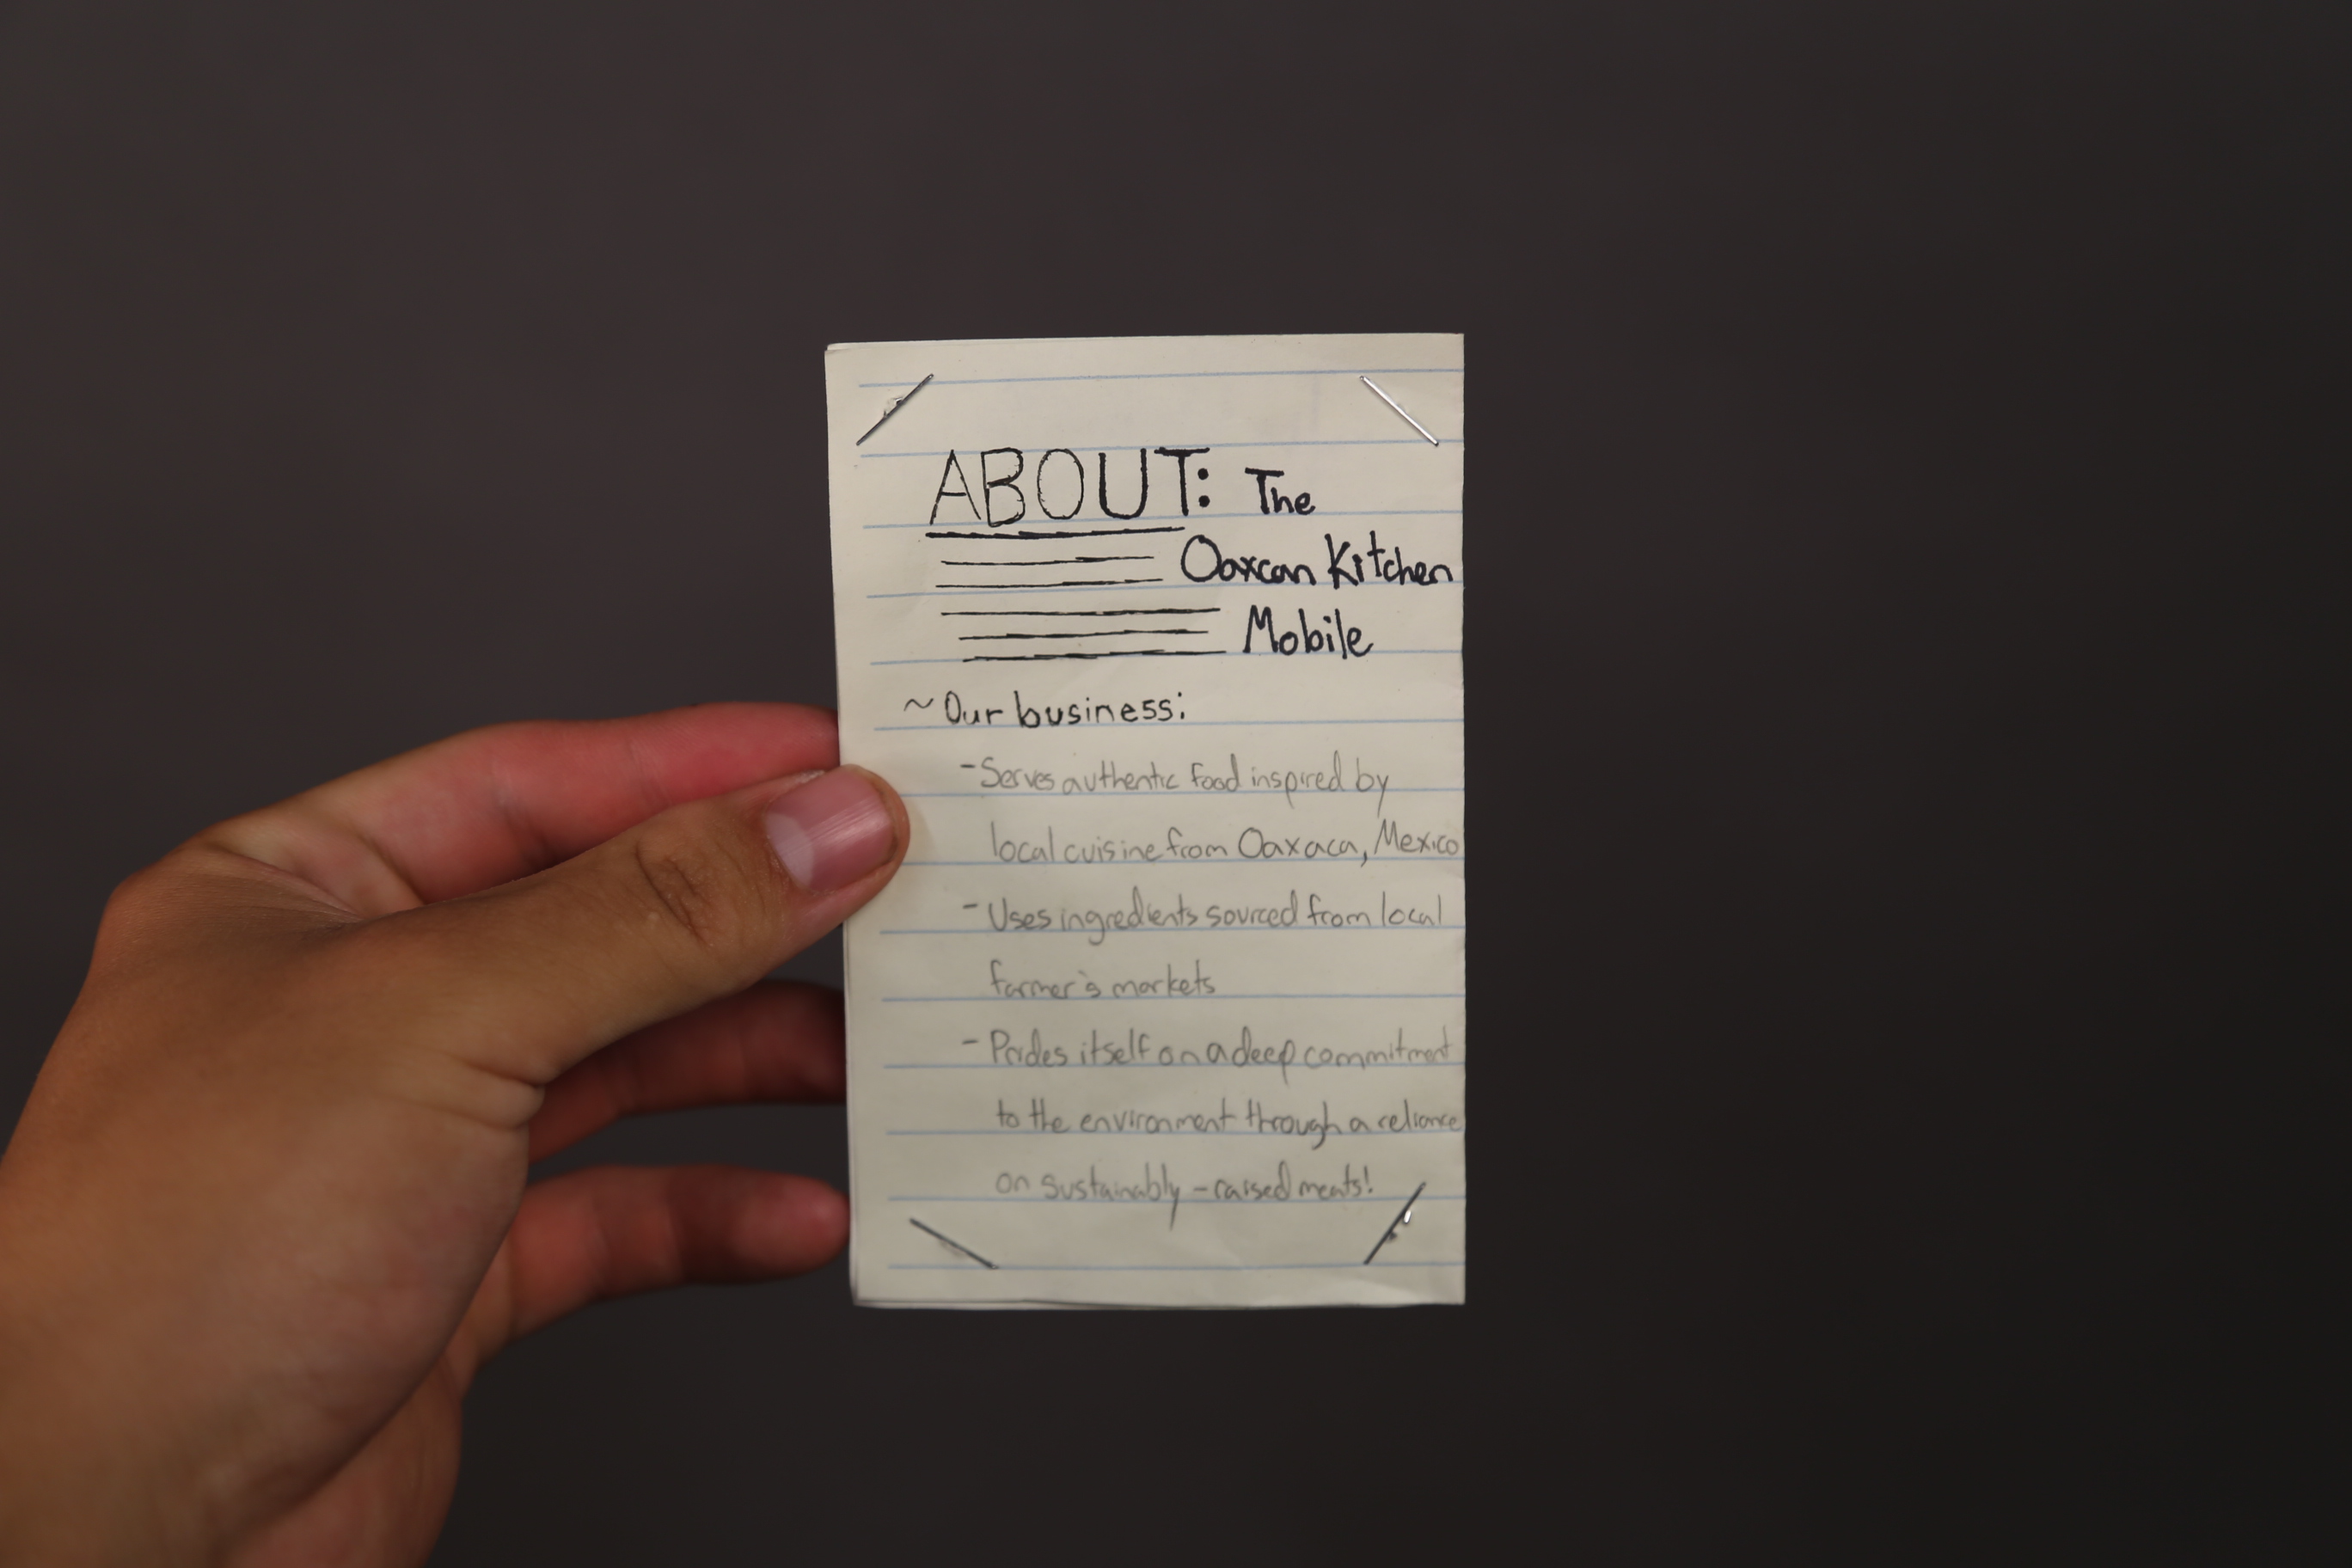 ABOUT: The
Oaxcan Kitchen
Mobile
~ Our business:
- Serves authentic food inspired by
local cuisine from Oaxaca, Mexico
- Uses ingredients sourced from local
farmer's markets
- Prides itself on a deep commitment
to the environment through a reliance
on sustainably-raised meats!